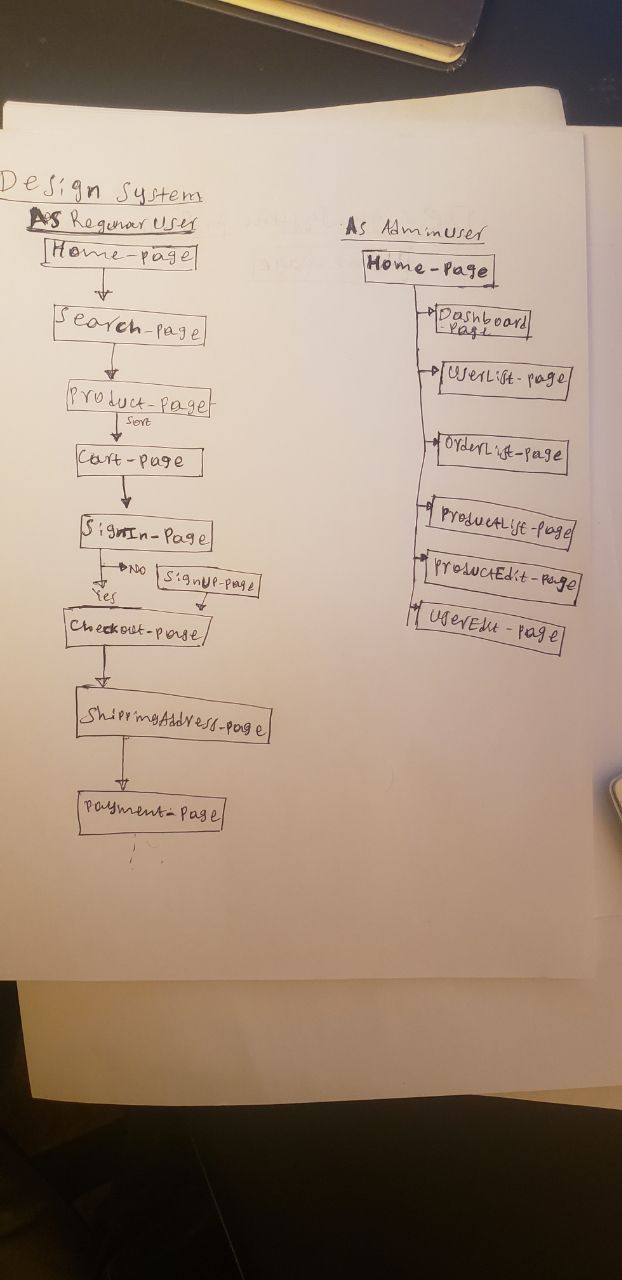 Design System
As Regular User
Home-page
Search-page
Product-page
Sort
Cart-page
SignIn-Page
No
SignUp-page
Yes
Checkout-page
ShippingAddress-page
Payment-Page
As Adminuser
Home-page
Dashboard
page
UserList-page
OrderList-page
ProductList-page
ProductEdit-page
UserEdit-page